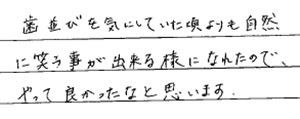 歯並びを気にしていた頃よりも自然
に笑う事が出来る様になれたので、
やって良かったなと思います.